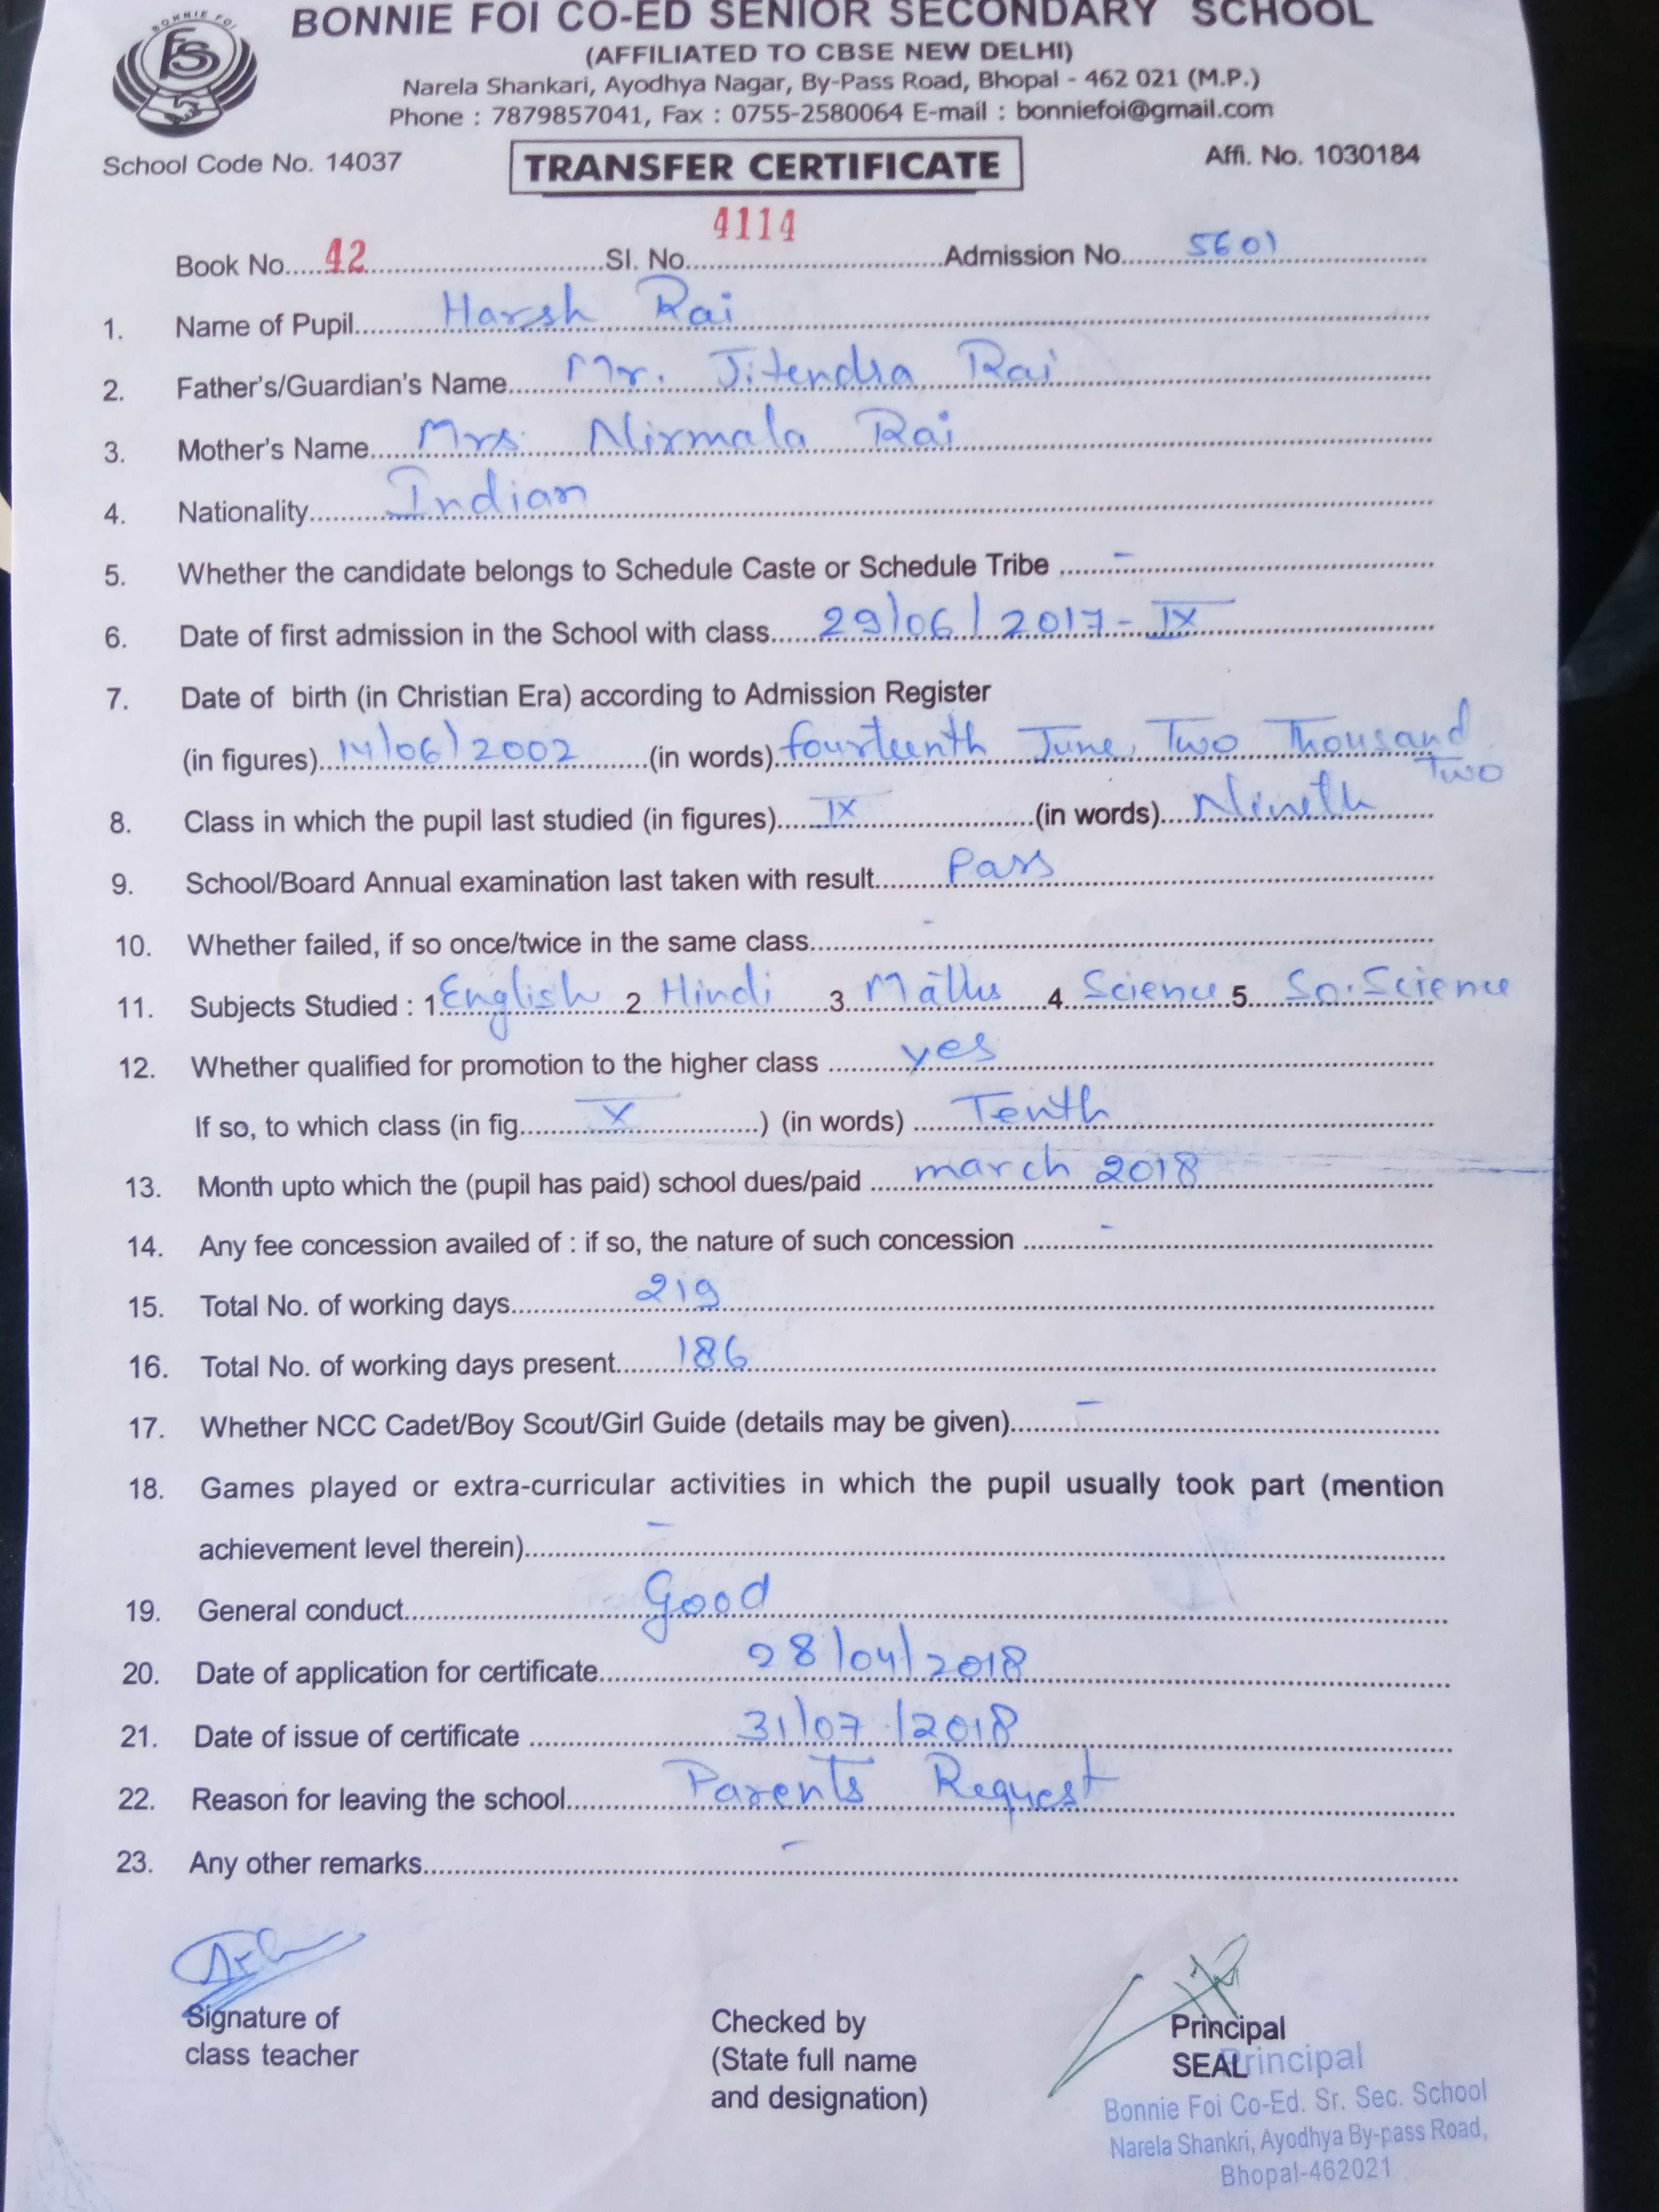 BONNIE FOI
FS
BONNIE FOI CO-ED SENIOR SECONDARY SCHOOL
(AFFILIATED TO CBSE NEW DELHI)
Narela Shankari, Ayodhya Nagar, By-Pass Road, Bhopal - 462 021 (M.P.)
Phone : 7879857041, Fax : 0755-2580064 E-mail : bonniefoi@gmail.com
School Code No. 14037 TRANSFER CERTIFICATE Affi. No. 1030184
Book No. 42 Sl. No. 4114 Admission No. 5601
1. Name of Pupil Harsh Rai
2. Father's/Guardian's Name Mr. Jitendra Rai
3. Mother's Name Mrs. Nirmala Rai
4. Nationality Indian
5. Whether the candidate belongs to Schedule Caste or Schedule Tribe -
6. Date of first admission in the School with class 29/06/2017 - IX
7. Date of birth (in Christian Era) according to Admission Register
(in figures) 14/06/2002 (in words) fourteenth June, Two Thousand
Two
8. Class in which the pupil last studied (in figures) IX (in words) Nineth
9. School/Board Annual examination last taken with result Pass
10. Whether failed, if so once/twice in the same class -
11. Subjects Studied : 1 English 2 Hindi 3 Maths 4 Science 5 So. Science
12. Whether qualified for promotion to the higher class yes
If so, to which class (in fig. X ) (in words) Tenth
13. Month upto which the (pupil has paid) school dues/paid march 2018
14. Any fee concession availed of : if so, the nature of such concession -
15. Total No. of working days 219
16. Total No. of working days present 186
17. Whether NCC Cadet/Boy Scout/Girl Guide (details may be given) -
18. Games played or extra-curricular activities in which the pupil usually took part (mention
achievement level therein) -
19. General conduct Good
20. Date of application for certificate 28/04/2018
21. Date of issue of certificate 31/07/2018
22. Reason for leaving the school Parents Request
23. Any other remarks -
Signature of
class teacher
Checked by
(State full name
and designation)
Principal
SEAL
Principal
Bonnie Foi Co-Ed. Sr. Sec. School
Narela Shankri, Ayodhya By-pass Road,
Bhopal-462021